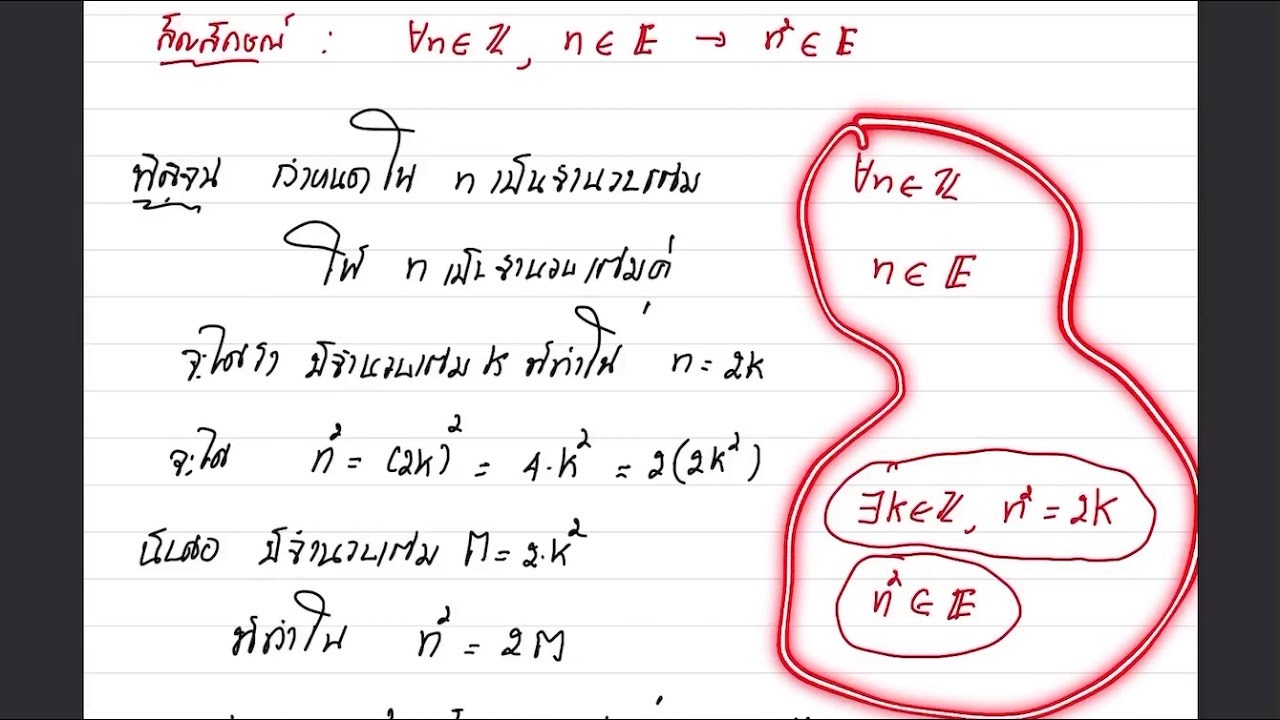 สัญลักษณ์ : ∀n∈ℤ, n∈𝔼 → n²∈𝔼
พิสูจน์ กำหนดให้ n เป็นจำนวนเต็ม ∀n∈ℤ
ให้ n เป็นจำนวนเต็มคู่ n∈𝔼
จะได้ว่า มีจำนวนเต็ม k ที่ทำให้ n = 2k
จะได้ n² = (2k)² = 4·k² = 2(2k²)
∃k∈ℤ, n² = 2k
นั่นคือ มีจำนวนเต็ม m = 2·k²
n²∈𝔼
ที่ทำให้ n² = 2m